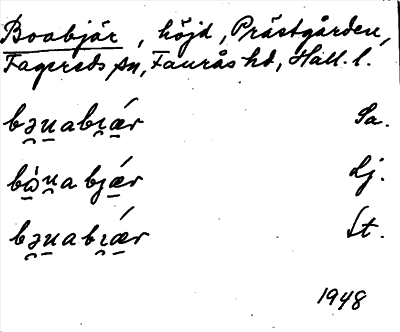 Boabjär, höjd, Prästgården,
Fagereds sn, Faurås hd, Hall. l.
bə̯u̯abɪ̯ǽ̯r Sa.
bὼ̯u̯a bjǽ̯r Lj.
bə̯u̯abɪ̯ǽ̯r St.
1948